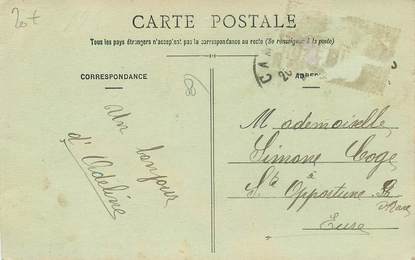 20 +
CARTE POSTALE
Tous les pays étrangers n'acceptent pas la correspondance au recto (Se renseigner à la poste)
CORRESPONDANCE
Un bonjour
d'Adeline
Mademoiselle
Simone Loge
à
Ste Opportune
Mare
Eure